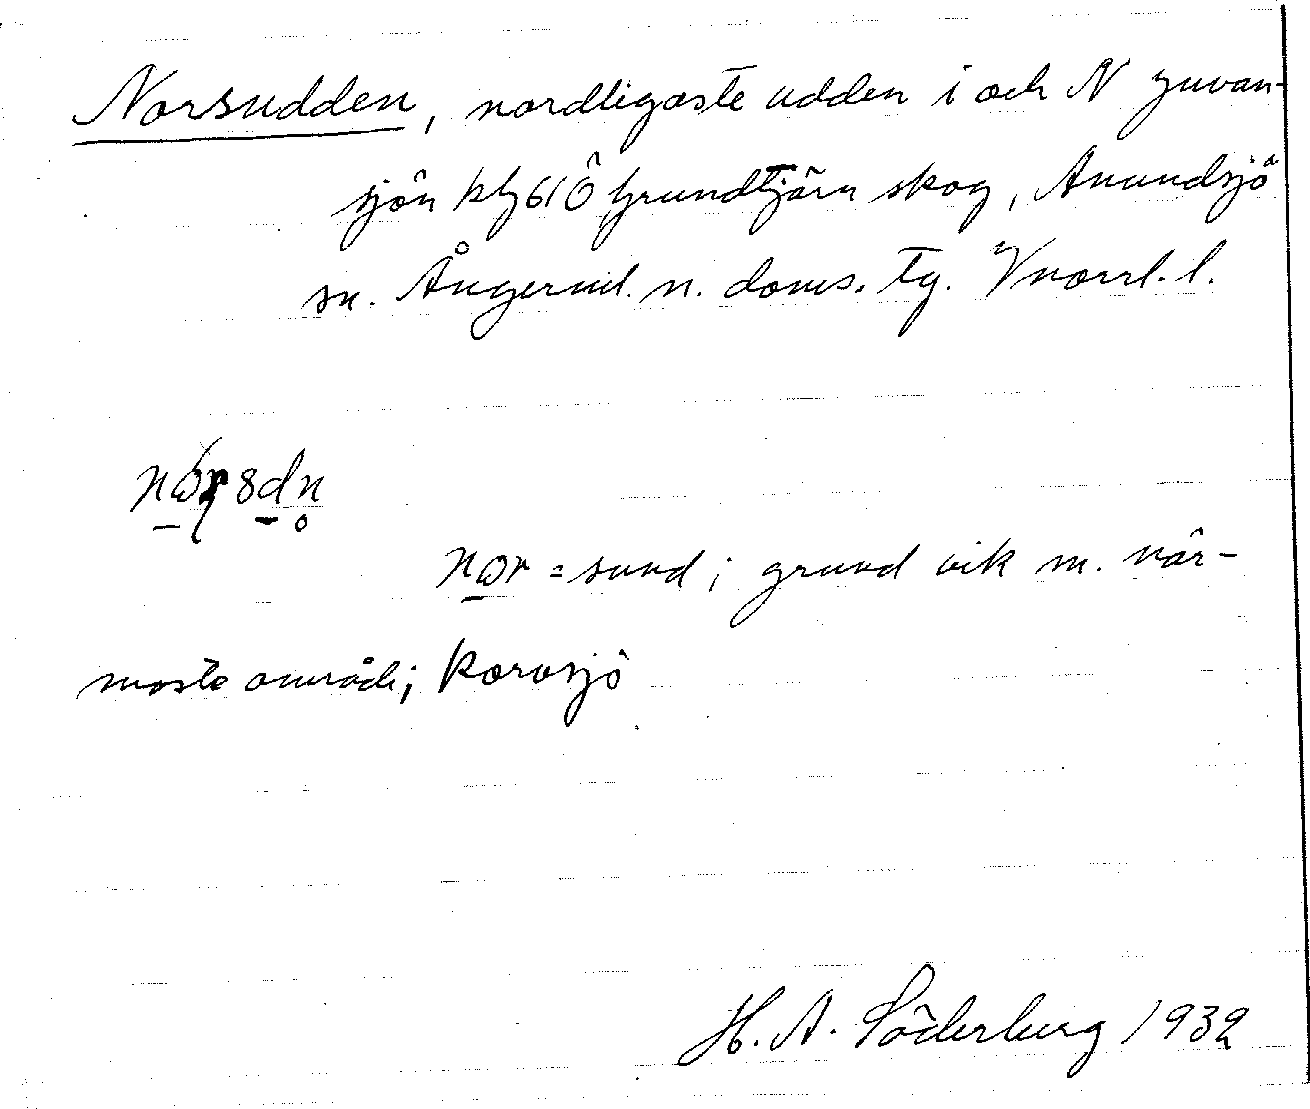 Norsudden, nordligaste udden i och N Juvan-
sjön kbl 61 Ö Grundtjärn skog, Anundsjö
sn. Ångerml. n. doms. tg. Vnorrl. l.
sdn
nɷr = sund; grund vik m. när-
maste område; Korvsjö
H. A. Söderberg 1932